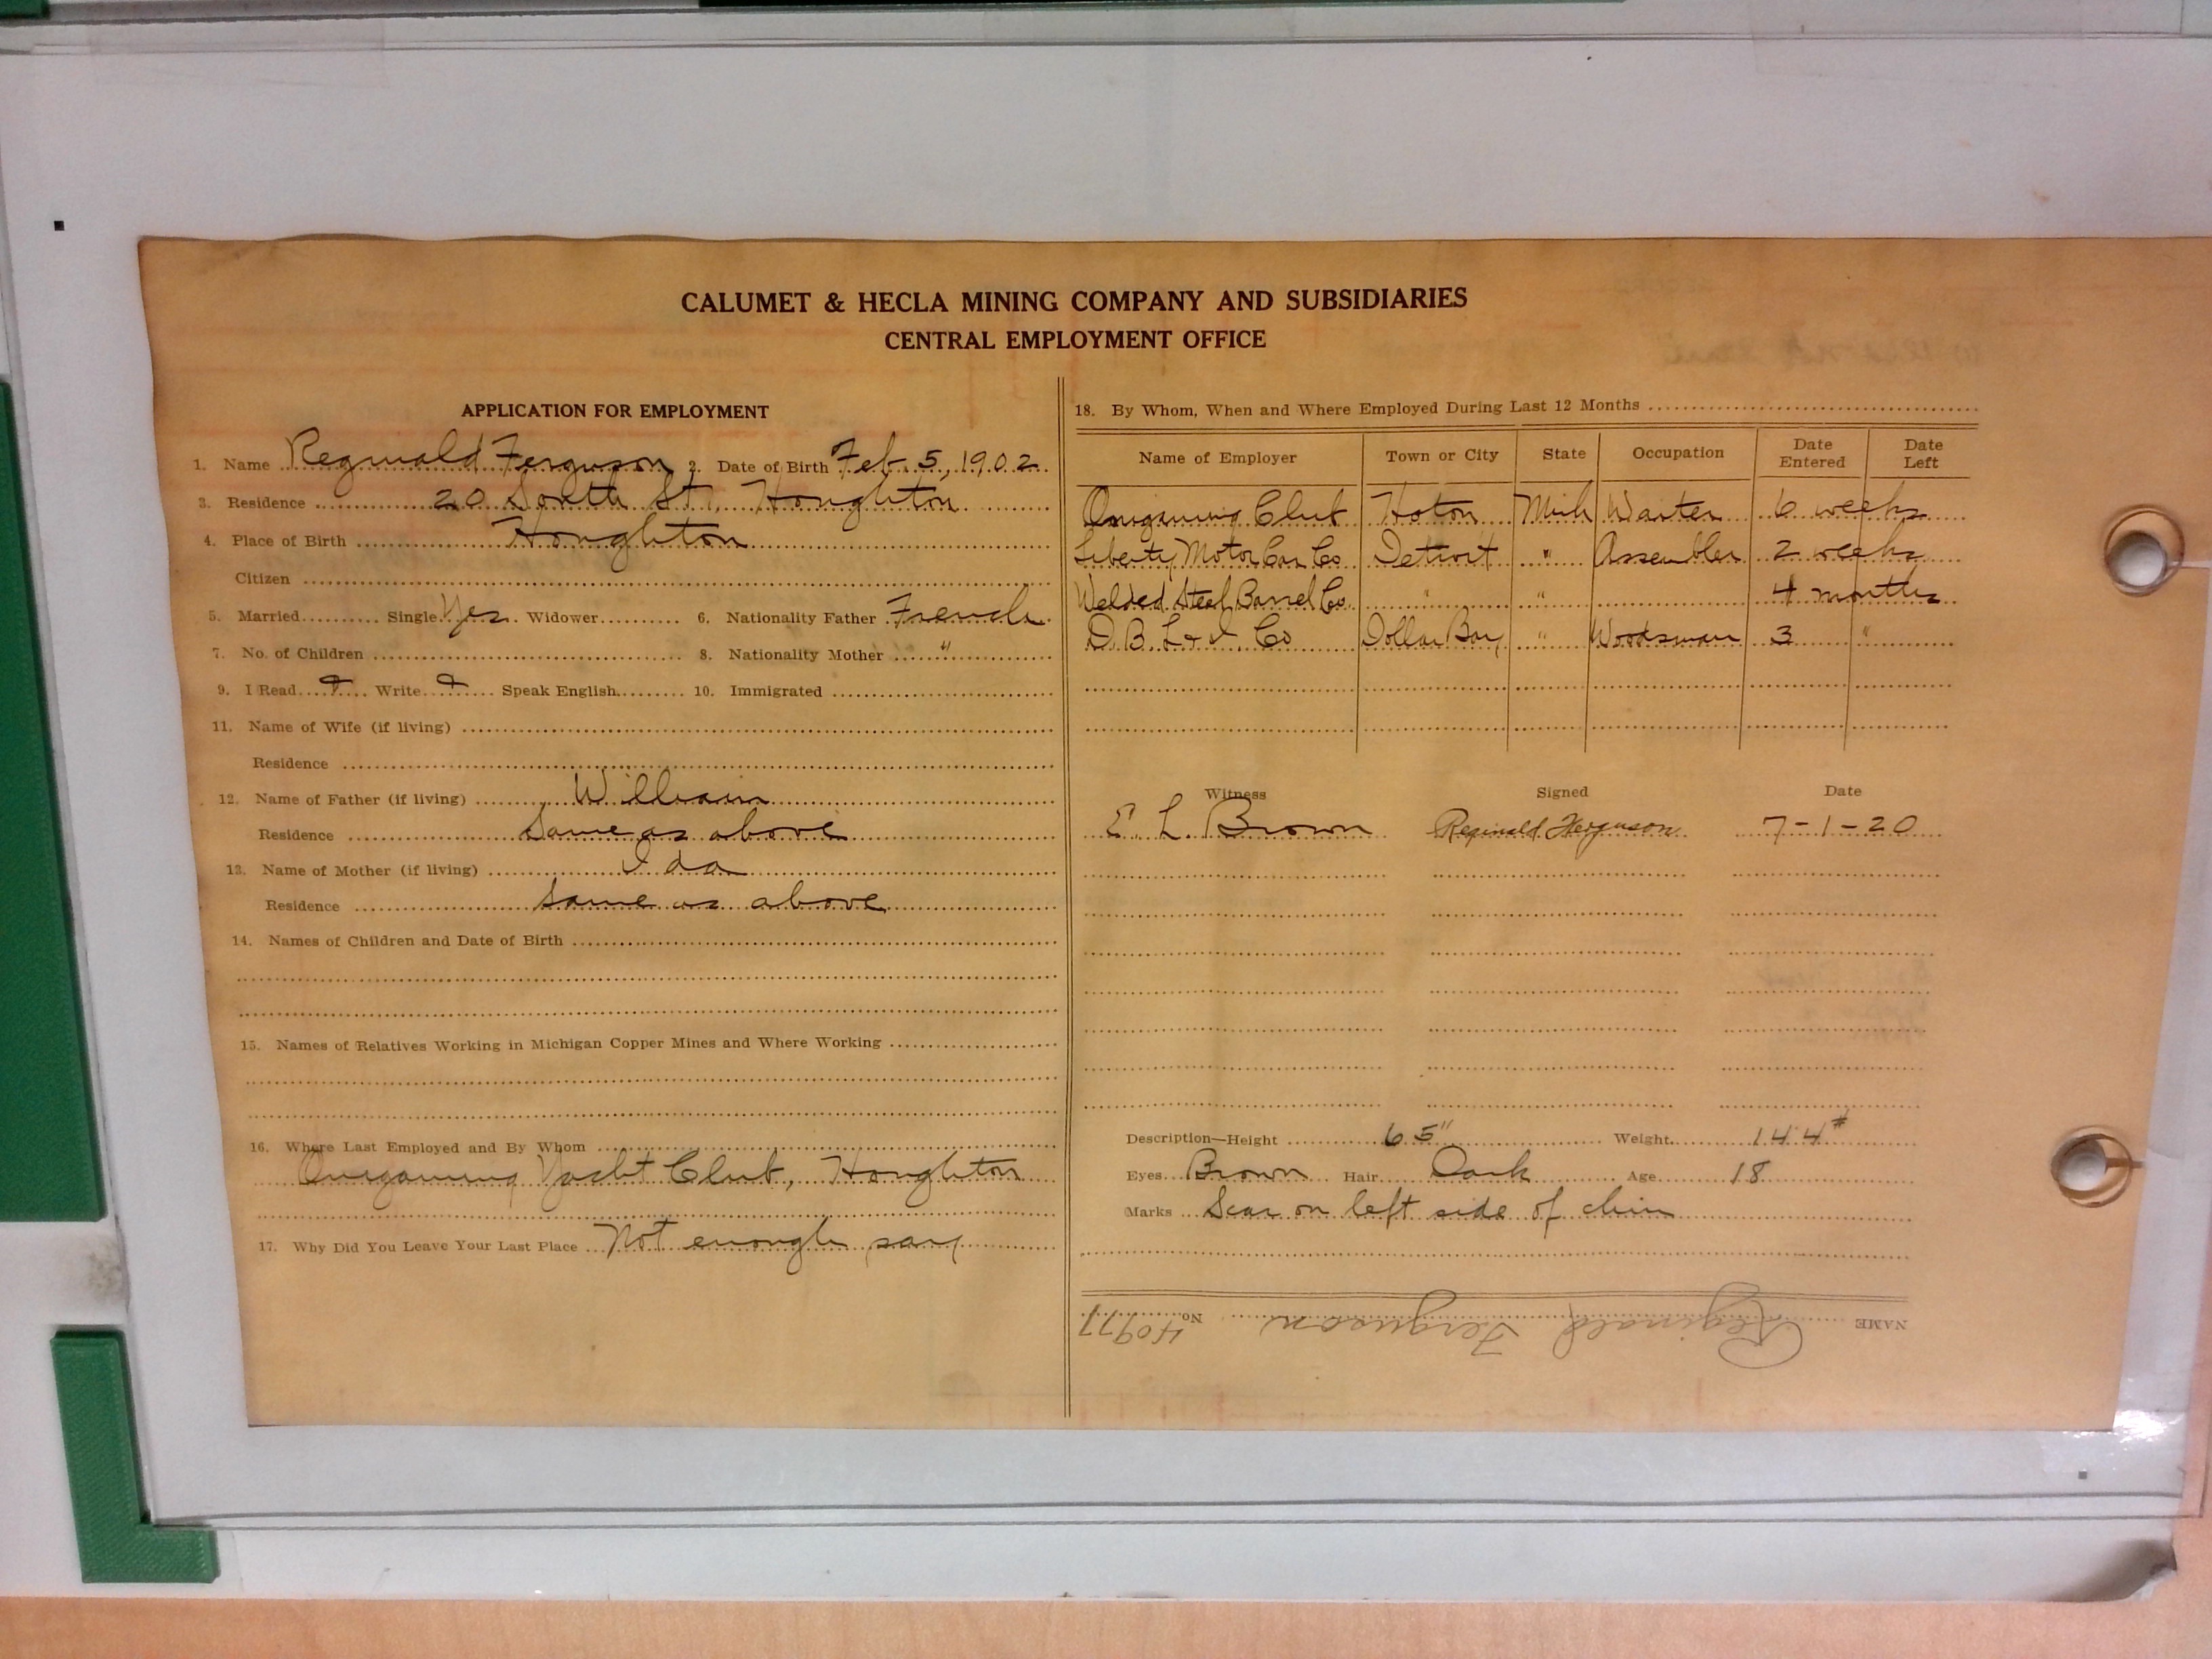 CALUMET & HECLA MINING COMPANY AND SUBSIDIARIES
CENTRAL EMPLOYMENT OFFICE
APPLICATION FOR EMPLOYMENT
1. Name Reginald Ferguson 2. Date of Birth Feb. 5, 1902
3. Residence 20 South St., Houghton
4. Place of Birth Houghton
Citizen
5. Married Single Yes Widower 6. Nationality Father French
7. No. of Children 8. Nationality Mother "
9. I Read Write Speak English 10. Immigrated
11. Name of Wife (if living)
Residence
12. Name of Father (if living) William
Residence Same as above
13. Name of Mother (if living) Ida
Residence Same as above
14. Names of Children and Date of Birth
15. Names of Relatives Working in Michigan Copper Mines and Where Working
16. Where Last Employed and By Whom
Onigaming Yacht Club, Houghton
17. Why Did You Leave Your Last Place Not enough pay
18. By Whom, When and Where Employed During Last 12 Months
Name of Employer Town or City State Occupation Date Entered Date Left
Onigaming Club Hoton Mich Waiter 6 weeks
Liberty Motor Car Co Detroit " Assembler 2 weeks
Welded Steel Barrel Co. " " 4 months
D. B. L & I. Co Dollar Bay " Woodsman 3 "
Witness Signed Date
E. L. Brown Reginald Ferguson 7-1-20
Description—Height 65" Weight 144#
Eyes Brown Hair Dark Age 18
Marks Scar on left side of chin
NAME Reginald Ferguson No. 40977